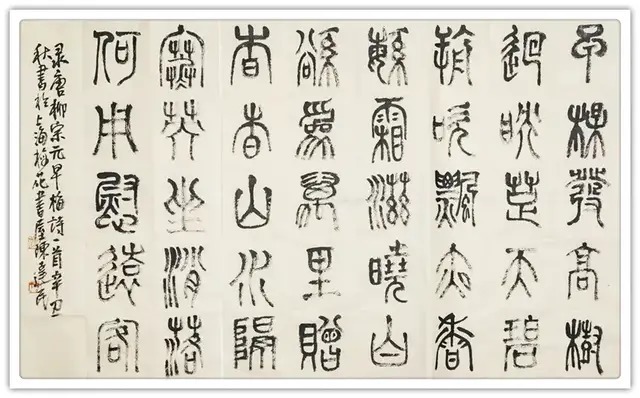 早楳發高樹
迥映楚天碧
朔吹飄夜香
緐霜滋曉白
欲爲萬里贈
杳杳山水隔
寒英坐消落
何用慰遠客
录唐柳宗元早梅詩一首辛丑
秋書於上海梅花書屋陳民